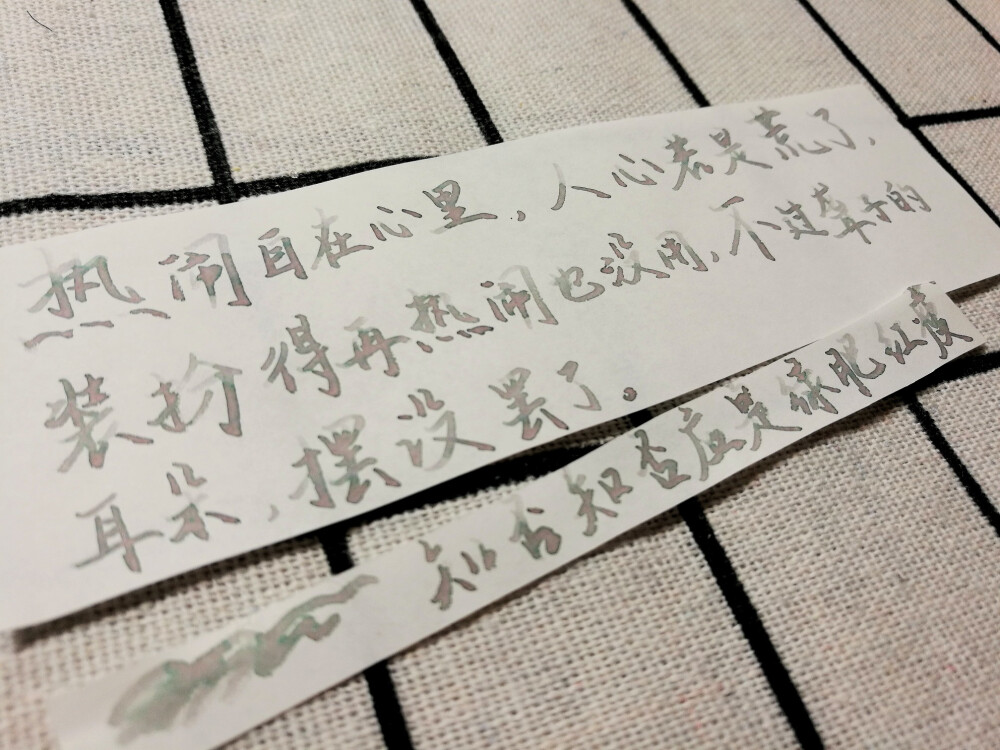 热闹自在心里，人心若是荒了，
装扮得再热闹也没用，不过聋子的
耳朵，摆设罢了。
知否知否应是绿肥红瘦